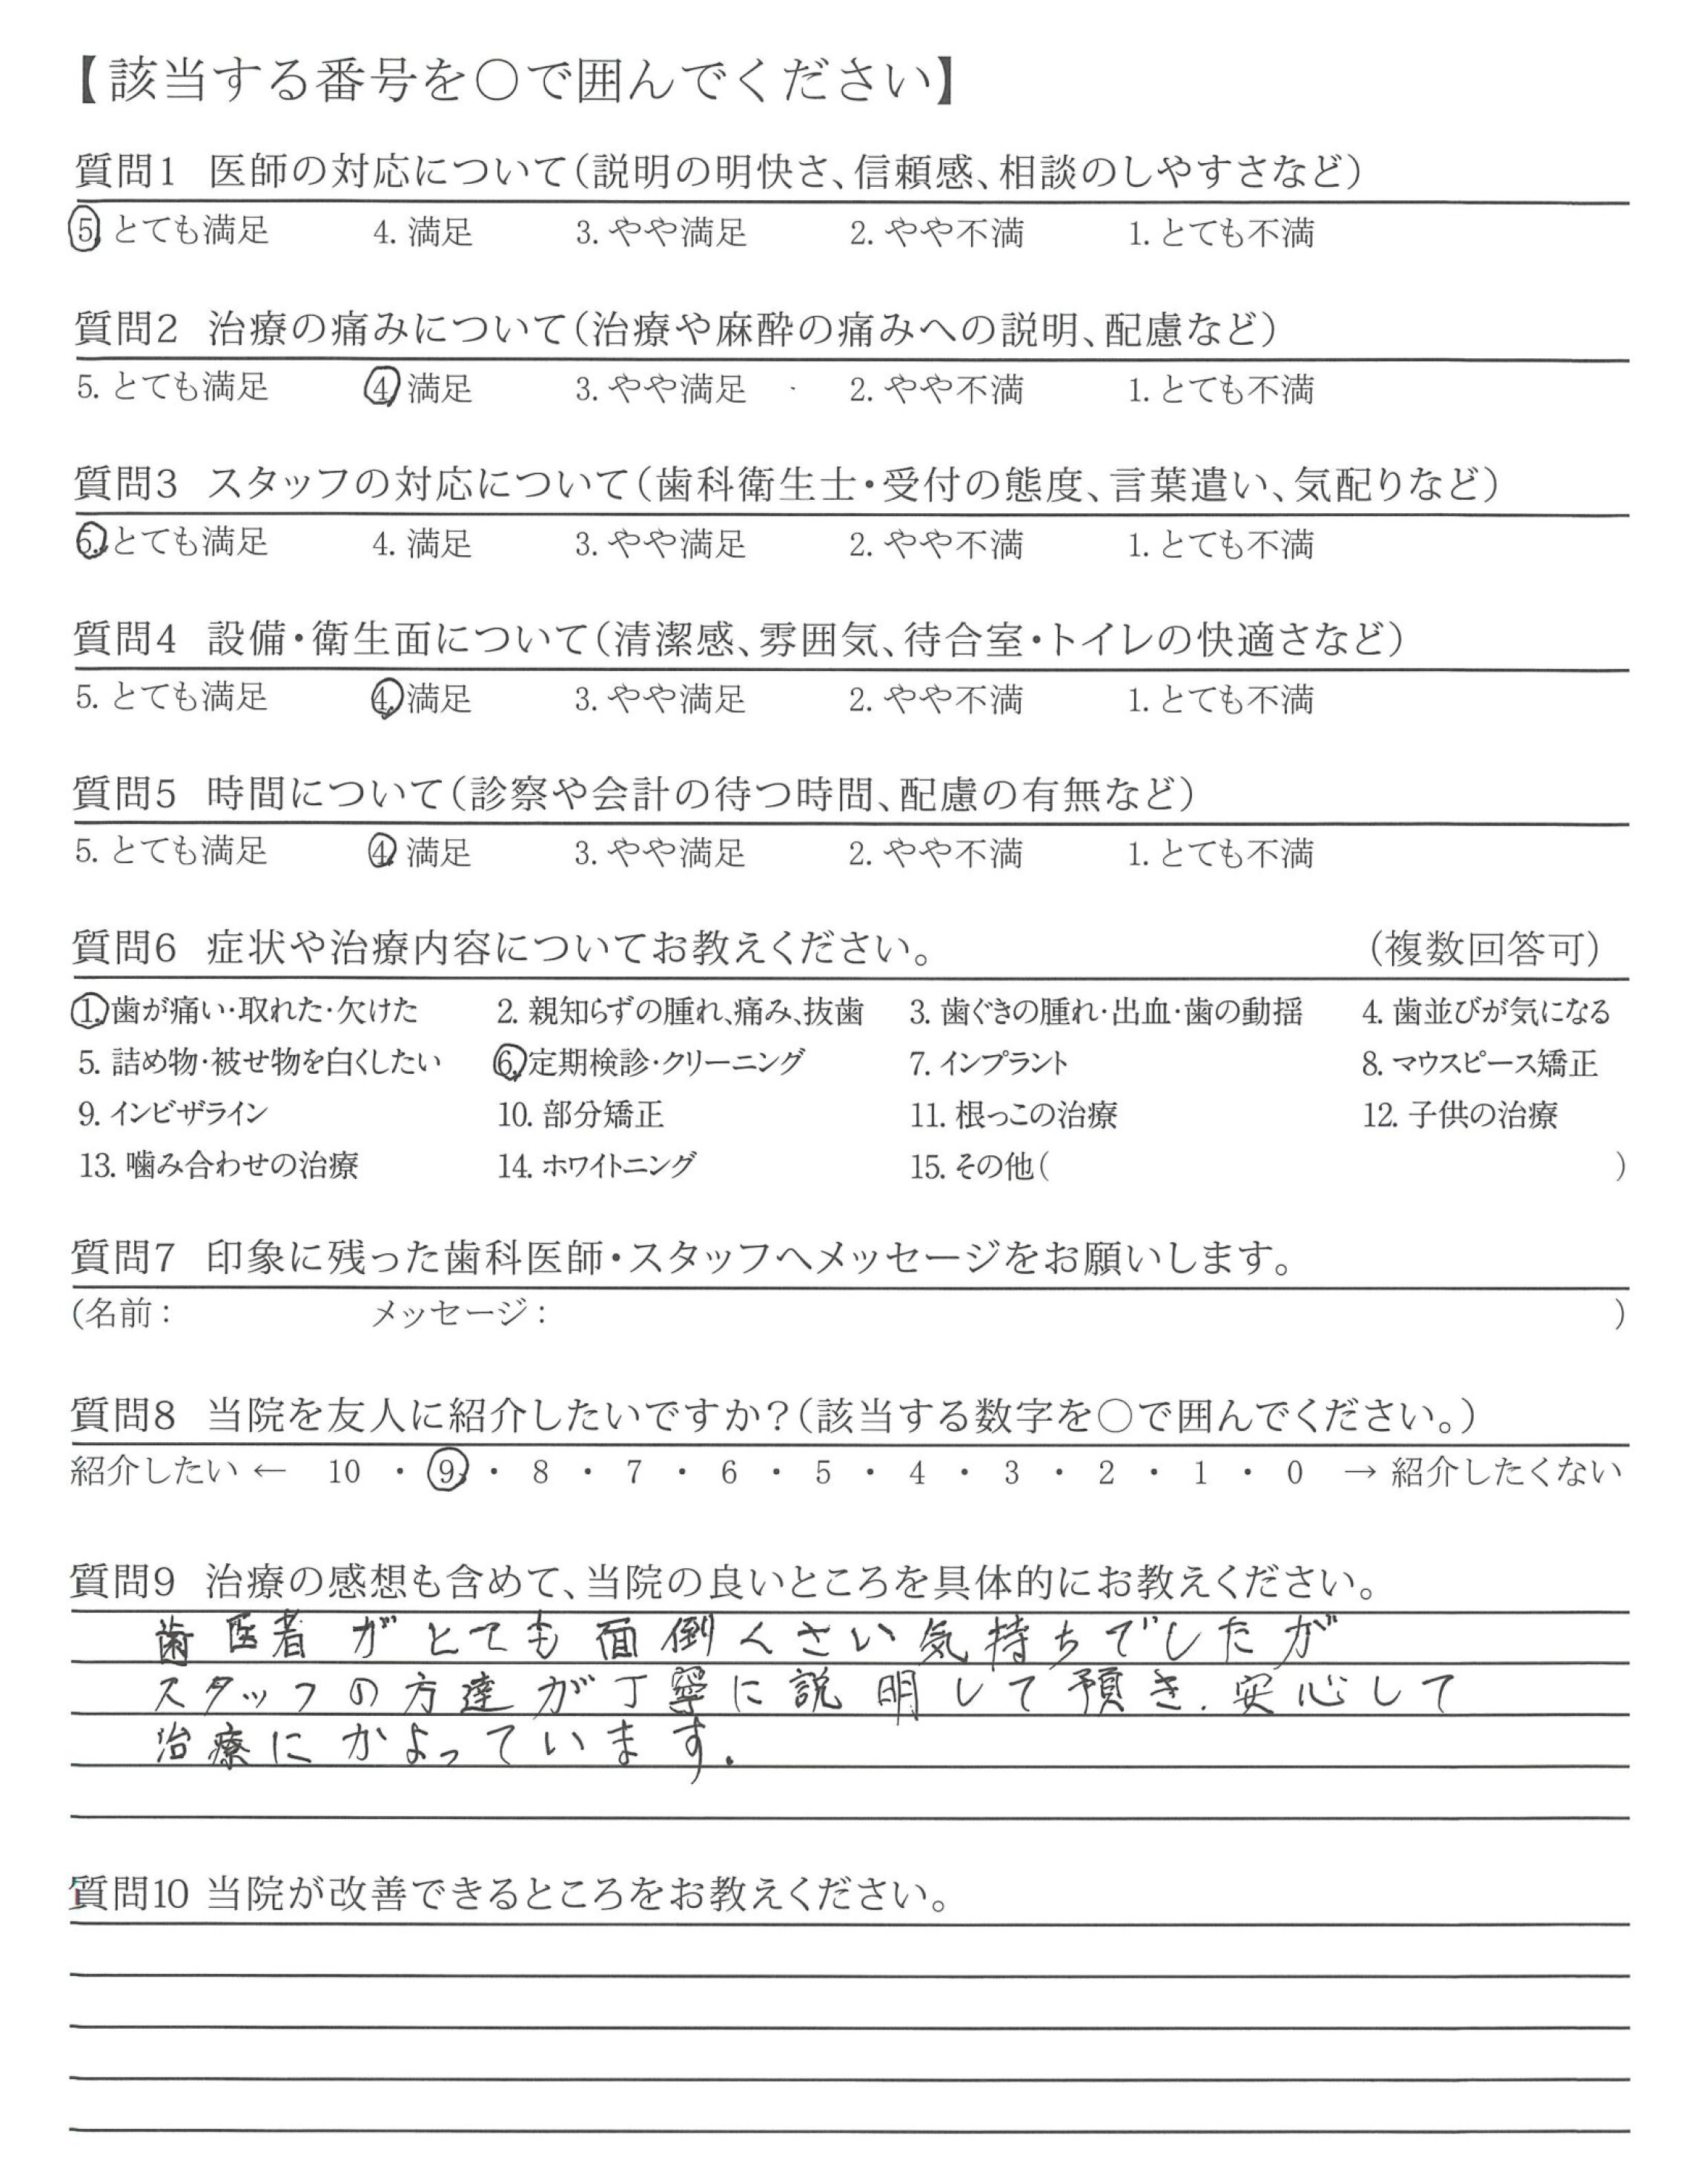 【該当する番号を○で囲んでください】
質問1 医師の対応について(説明の明快さ、信頼感、相談のしやすさなど)
5. とても満足 4. 満足 3. やや満足 2. やや不満 1. とても不満
質問2 治療の痛みについて(治療や麻酔の痛みへの説明、配慮など)
5. とても満足 4. 満足 3. やや満足 2. やや不満 1. とても不満
質問3 スタッフの対応について(歯科衛生士・受付の態度、言葉遣い、気配りなど)
5. とても満足 4. 満足 3. やや満足 2. やや不満 1. とても不満
質問4 設備・衛生面について(清潔感、雰囲気、待合室・トイレの快適さなど)
5. とても満足 4. 満足 3. やや満足 2. やや不満 1. とても不満
質問5 時間について(診察や会計の待つ時間、配慮の有無など)
5. とても満足 4. 満足 3. やや満足 2. やや不満 1. とても不満
質問6 症状や治療内容についてお教えください。 (複数回答可)
1. 歯が痛い・取れた・欠けた 2. 親知らずの腫れ、痛み、抜歯 3. 歯ぐきの腫れ・出血・歯の動揺 4. 歯並びが気になる
5. 詰め物・被せ物を白くしたい 6. 定期検診・クリーニング 7. インプラント 8. マウスピース矯正
9. インビザライン 10. 部分矯正 11. 根っこの治療 12. 子供の治療
13. 噛み合わせの治療 14. ホワイトニング 15. その他( )
質問7 印象に残った歯科医師・スタッフへメッセージをお願いします。
(名前: メッセージ: )
質問8 当院を友人に紹介したいですか?(該当する数字を○で囲んでください。)
紹介したい ← 10 ・ 9 ・ 8 ・ 7 ・ 6 ・ 5 ・ 4 ・ 3 ・ 2 ・ 1 ・ 0 → 紹介したくない
質問9 治療の感想も含めて、当院の良いところを具体的にお教えください。
歯医者がとても面倒くさい気持ちでしたが
スタッフの方達が丁寧に説明して預き、安心して
治療にかよっています.
質問10 当院が改善できるところをお教えください。